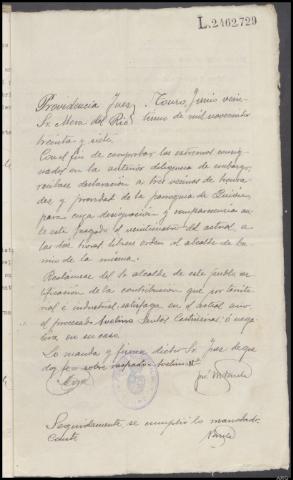 L.2462729
Providencia Juez Touro, Junio vein-
Sr. Mera del Río tiuno de mil novecientos
treinta y siete.
Con el fin de comprobar los extremos consig-
nados en la anterior diligencia de embargo,
recíbase declaración a tres vecinos de honra-
dez y probidad de la parroquia de
para cuya designación y comparecencia en
este Juzgado el veintinueve del actual a
las doce horas líbrese orden al alcalde de ba-
rrio de la misma.
Reclámese del Sr. alcalde de este pueblo cer-
tificación de la contribución que por territo-
rial é industrial satisfaga en el actual año
el procesado Avelino Santos Castiñeiras ó nega-
tiva en su caso.
Lo manda y firma dicho Sr. Juez de que
doy fe = sobre raspado = Avelino =
Mera José
Seguidamente se cumplió lo mandado.